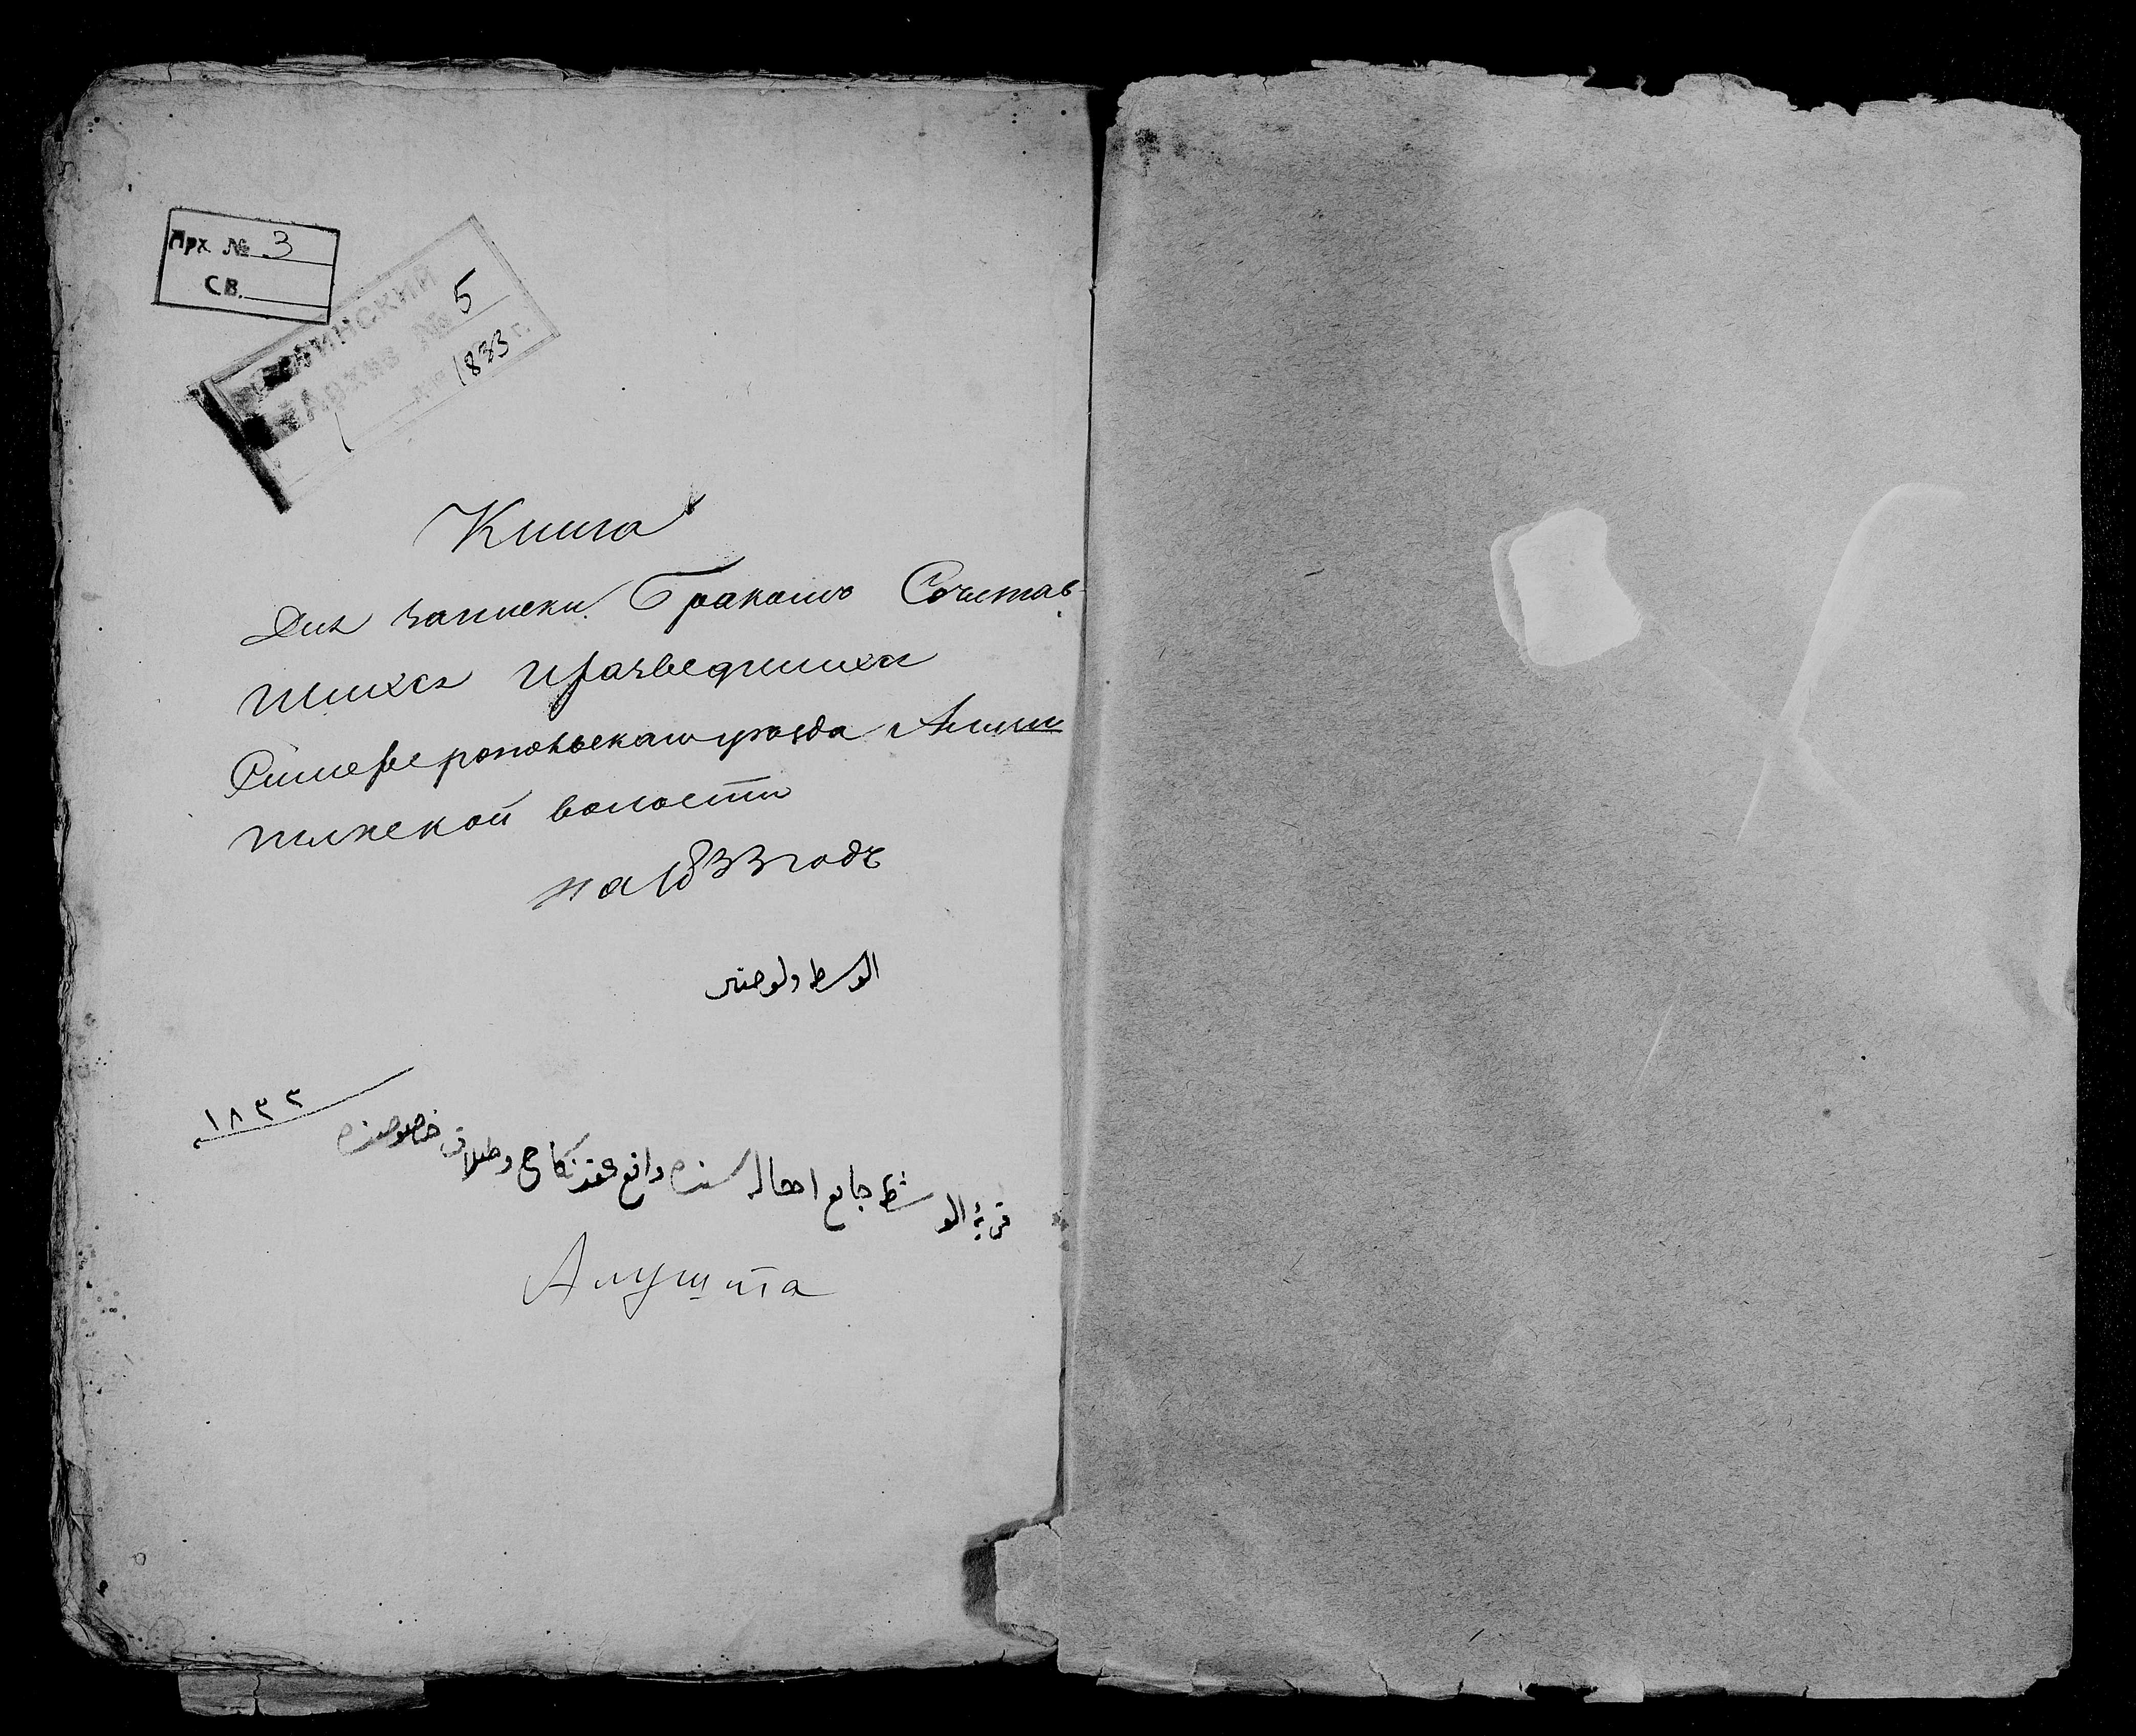 Арх № 3
СВ.
Архив № 5
1833 г.
Книга
Для записки Бракомъ Сочетав-
шихся и разведшихся
Симферопольскаго уезда Алуш
тинской волости
на 1833 годъ
الوسطه ولوصتى
١٨٣٣
قريۀ الوشطه جامع سنده واقع عقد نكاح وطلاق خصوصنده
Алушта